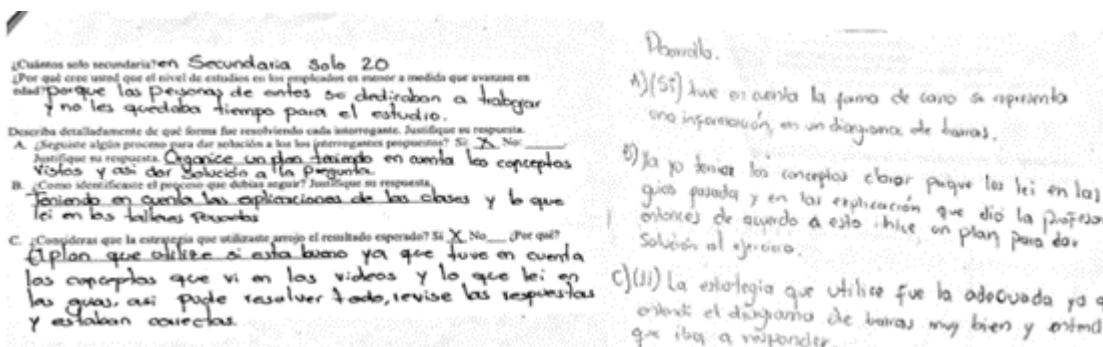 ¿Cuántos solo secundaria? en Secundaria Solo 20
¿Por qué cree usted que el nivel de estudios en los empleados es menor a medida que avanzan en
edad? porque las personas de antes se dedicaban a trabajar
y no les quedaba tiempo para el estudio.
Describa detalladamente de qué forma fue resolviendo cada interrogante. Justifique su respuesta.
A. ¿Seguiste algún proceso para dar solución a los los interrogantes propuestos? Si: X No:
Justifique su respuesta. Organice un plan teniendo en cuenta los conceptos
vistos y asi dar solución a lla pregunta.
B. ¿Como identificaste el proceso que debías seguir? Justifique su respuesta.
Teniendo en cuenta las explicaciones de las clases y lo que
lei en los talleres pasados
C. ¿Consideras que la estrategia que utilizaste arrojo el resultado esperado? Si X No ¿Por qué?
El plan que utilize si esta bueno ya que tuve en cuenta
los conceptos que vi en los videos y lo que lei en
las guas, asi pude resolver todo, revise las respuestas
y estaban correctas.
Desarrollo.
A) (Si) tuve en cuenta la forma de como se representa
una información, en un diagrama de barras.
B) Ya yo tenia los conceptos claros porque los lei en las
guias pasada y en las explicación que dió la profesor
entonces de acuerdo a esto ihice un plan para dar
Solución al ejercicio.
C) (Si) La estrategia que utilice fue la adecuada ya q
entendí el diagrama de barras muy bien y entend
que iba a responder.